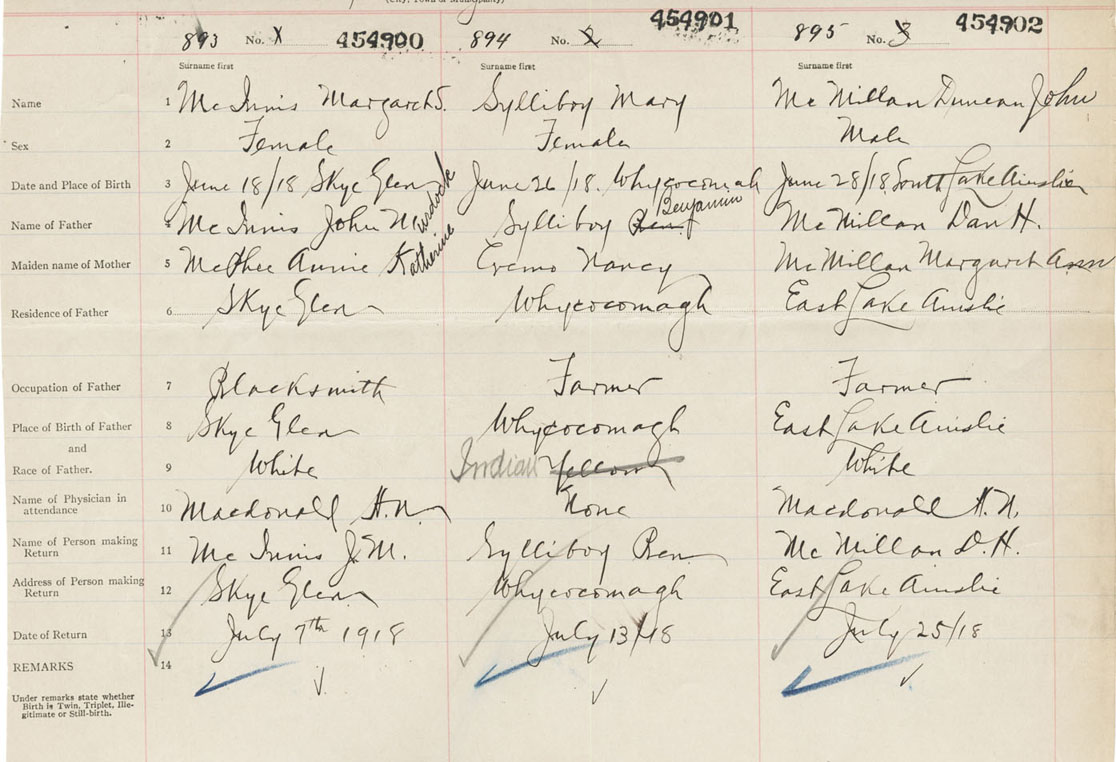 (City, Town or Municipality)
893 No. 1 454900 894 No. 2 454901 895 No. 3 454902
Surname first Surname first Surname first
Name 1 McInnis Margaret S. Sylliboy Mary McMillan Duncan John
Sex 2 Female Female Male
Date and Place of Birth 3 June 18/18 Skye Glen June 26/18. Whycocomah June 28/18 South Lake Ainslie
Name of Father 4 McInnis John Murdock Sylliboy Ben Benjamin McMillan Dan H.
Maiden name of Mother 5 McPhee Annie Katherine Cremo Nancy McMillan Margaret Ann
Residence of Father 6 Skye Glen Whycocomagh East Lake Ainslie
Occupation of Father 7 Blacksmith Farmer Farmer
Place of Birth of Father 8 Skye Glen Whycocomagh East Lake Ainslie
and
Race of Father. 9 White Indian Yellow White
Name of Physician in
attendance 10 Macdonald H.N. None Macdonald H.N.
Name of Person making
Return 11 McInnis J.M. Sylliboy Ben McMillan D.H.
Address of Person making
Return 12 Skye Glen Whycocomagh East Lake Ainslie
Date of Return 13 July 7th 1918 July 13/18 July 25/18
REMARKS 14
Under remarks state whether
Birth is Twin, Triplet, Ille-
gitimate or Still-birth.